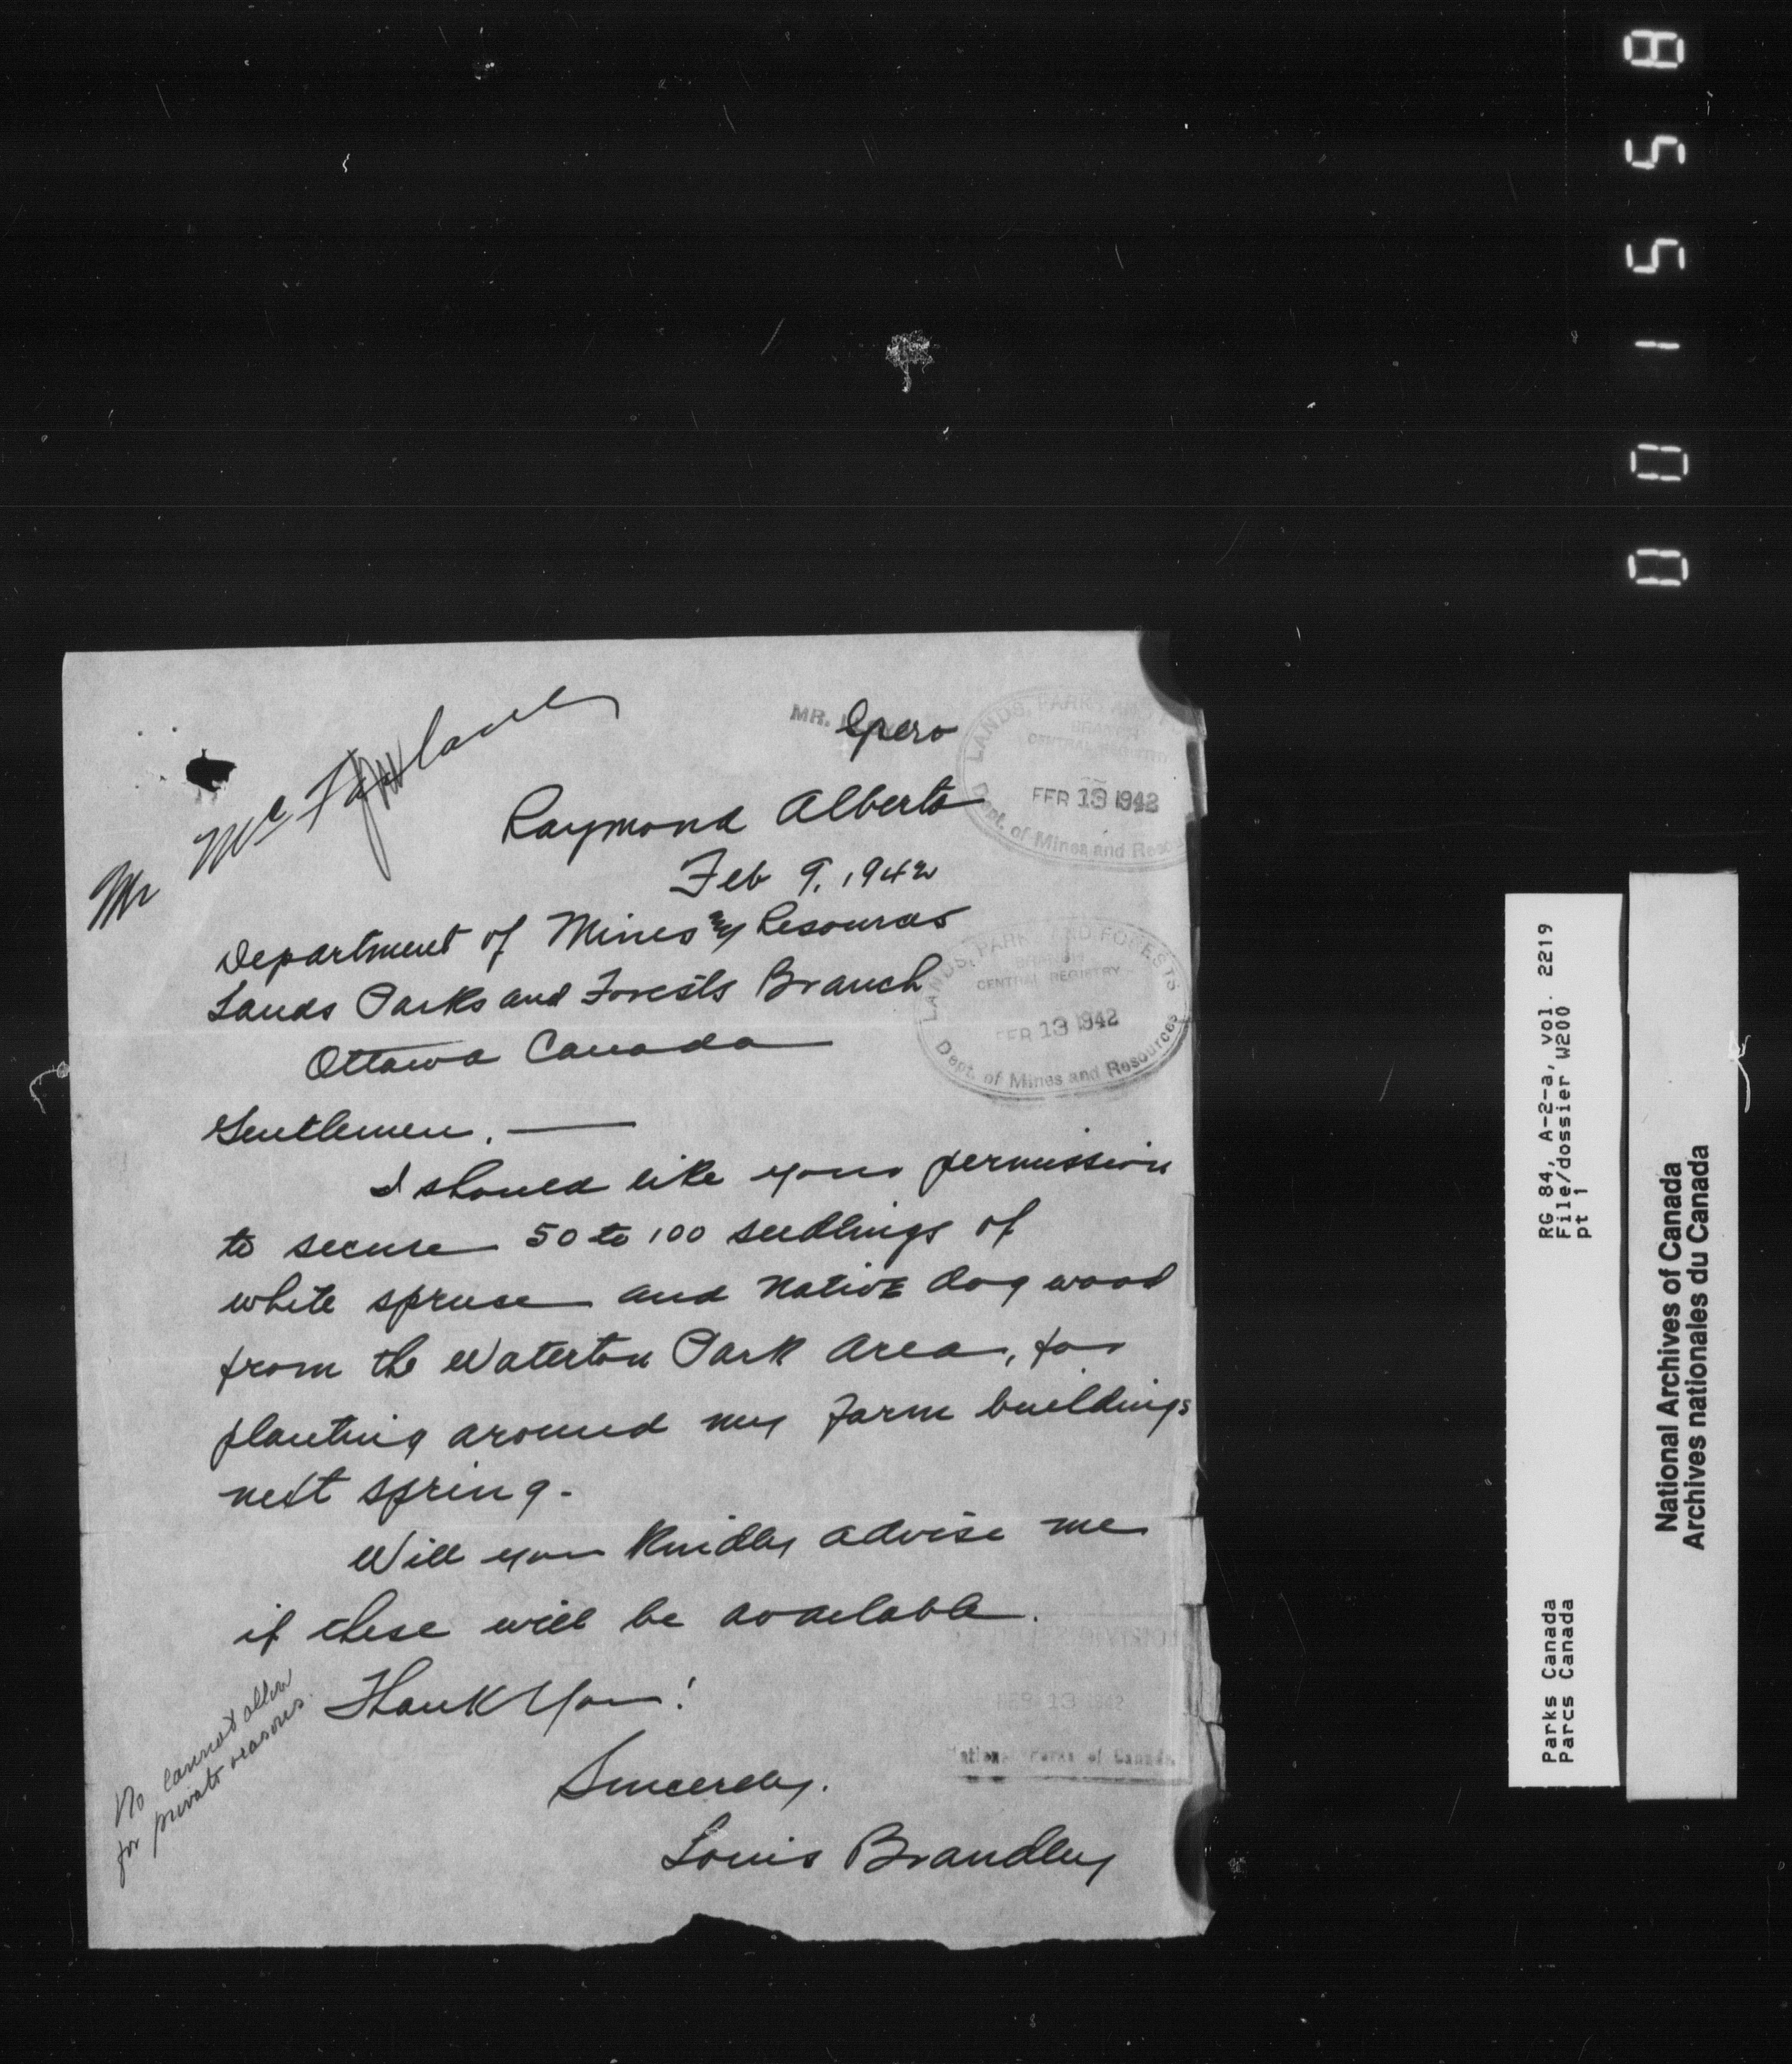 001558
Mr McFarlane
MR.
LANDS, PARKS AND
BRANCH
CENTRAL REGISTRY
FEB 13 1942
Dept. of Mines and Reso
Raymond Alberta
Feb 9, 1942
Department of Mines & Resources
Lands Parks and Forests Branch
Ottawa Canada
LANDS, PARKS AND FORESTS
BRANCH
CENTRAL REGISTRY
FEB 13 1942
Dept. of Mines and Resources
Gentlemen. —
I should like your permission
to secure 50 to 100 seedlings of
white spruce and native dogwood
from the Waterton Park area, for
planting around my farm buildings
next spring.
Will you kindly advise me
if these will be available.
Thank You!
Sincerely.
Louis Brandley
No cannot allow
for private reasons.
DIVISION
FEB 13 1942
National Parks of Canada
RG 84, A-2-a, vol. 2219
File/dossier W200
pt 1
Parks Canada
Parcs Canada
National Archives of Canada
Archives nationales du Canada